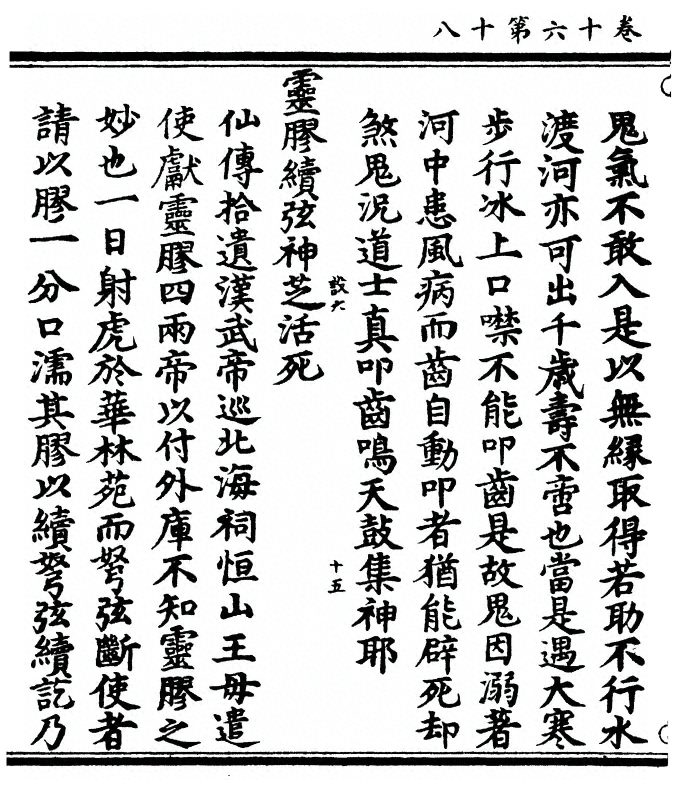 卷十六第十八
鬼氣不敢入是以無縁取得若助不行水
渡河亦可出千歲壽不啻也當是遇大寒
步行冰上口噤不能叩齒是故鬼因溺著
河中患風病而齒自動叩者猶能辟死却
煞鬼況道士真叩齒鳴天鼓集神耶
十五
靈膠續弦神芝活死
設六
仙傳拾遺漢武帝巡北海祠恒山王母遣
使獻靈膠四兩帝以付外庫不知靈膠之
妙也一日射虎於華林苑而弩弦斷使者
請以膠一分口濡其膠以續弩弦續訖乃